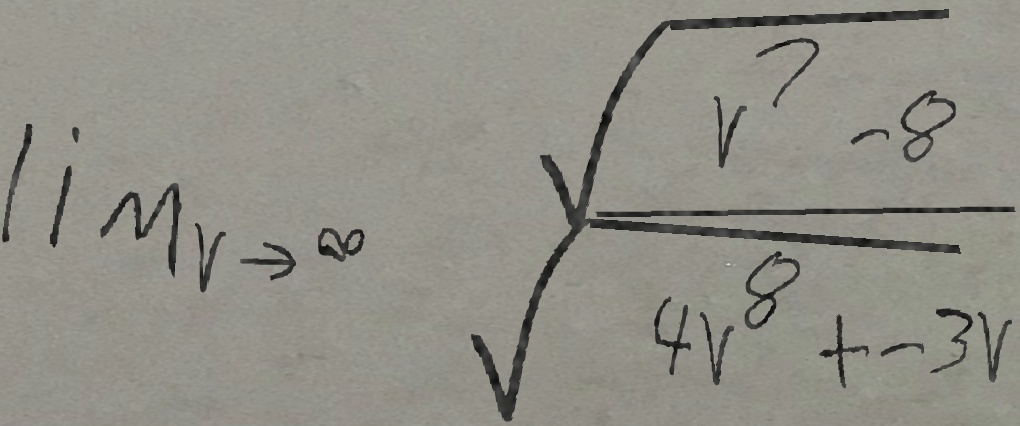 \lim_{v \to \infty} \frac{\sqrt{v^7 - 8}}{\sqrt{4v^8 + -3v}}